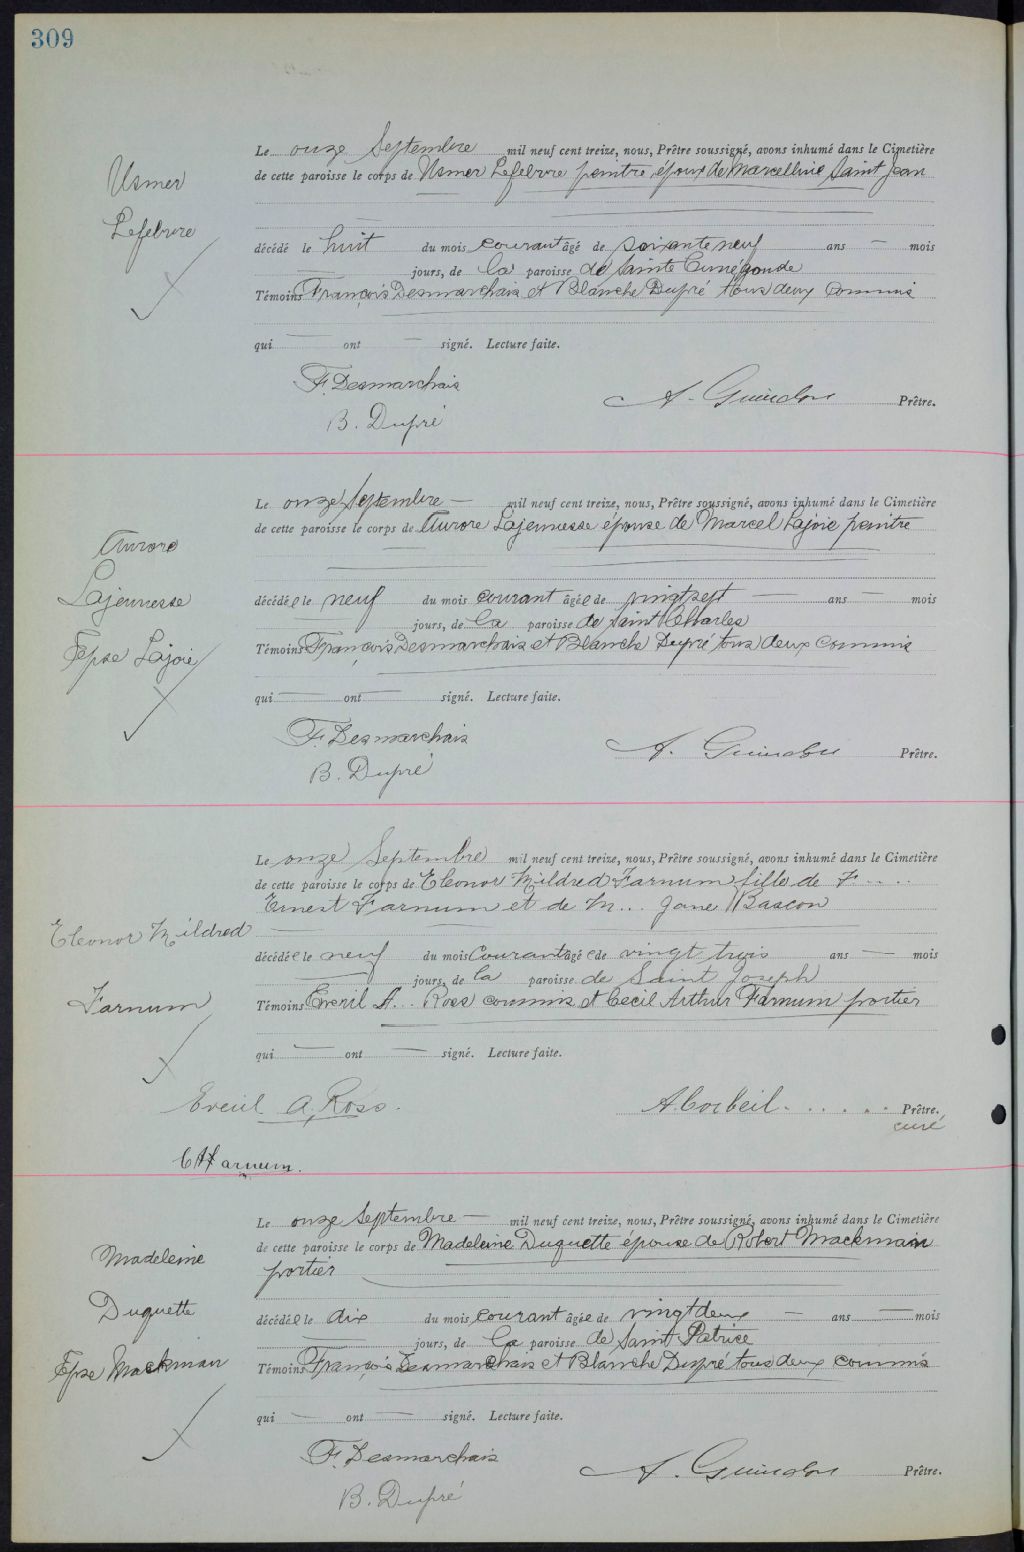 309
Le onze Septembre mil neuf cent treize, nous, Prêtre soussigné, avons inhumé dans le Cimetière
Usmer
Lefebvre
de cette paroisse le corps de Usmer Lefebvre peintre époux de Marcelline Saint Jean
décédé le huit du mois courant âgé de soixante neuf ans — mois
— jours, de la paroisse de Sainte Cunégonde
Témoins François Desmarchais et Blanche Dupré tous deux commis
qui — ont — signé. Lecture faite.
F. Desmarchais
A. Guindon Prêtre.
B. Dupré
Le onze Septembre — mil neuf cent treize, nous, Prêtre soussigné, avons inhumé dans le Cimetière
de cette paroisse le corps de Aurore Lajeunesse épouse de Marcel Lajoie peintre
Aurore
Lajeunesse
Epse Lajoie
décédée le neuf du mois courant âgée de vingt sept — ans — mois
— jours, de la paroisse de Saint Charles
Témoins François Desmarchais et Blanche Dupré tous deux commis
qui — ont — signé. Lecture faite.
F. Desmarchais
A. Guindon Prêtre.
B. Dupré
Le onze Septembre mil neuf cent treize, nous, Prêtre soussigné, avons inhumé dans le Cimetière
de cette paroisse le corps de Eleonor Mildred Farnum fille de F....
Ernest Farnum et de M... Jane Bascon
Eleonor Mildred
Farnum
décédée le neuf du mois Courant âgée de vingt trois ans — mois
— jours, de la paroisse de Saint Joseph
Témoins Evenil A.. Ross commis et Cecil Arthur Farnum portier
qui — ont — signé. Lecture faite.
Evenil A. Ross.
A. Corbeil..... Prêtre.
curé
C A Farnum.
Le onze Septembre — mil neuf cent treize, nous, Prêtre soussigné, avons inhumé dans le Cimetière
de cette paroisse le corps de Madeleine Duquette épouse de Robert Mackman
portier
Madeleine
Duquette
Epse Mackman
décédée le dix du mois courant âgée de vingt deux — ans — mois
— jours, de la paroisse de Saint Patrice
Témoins François Desmarchais et Blanche Dupré tous deux commis
qui — ont — signé. Lecture faite.
F. Desmarchais
A. Guindon Prêtre.
B. Dupré